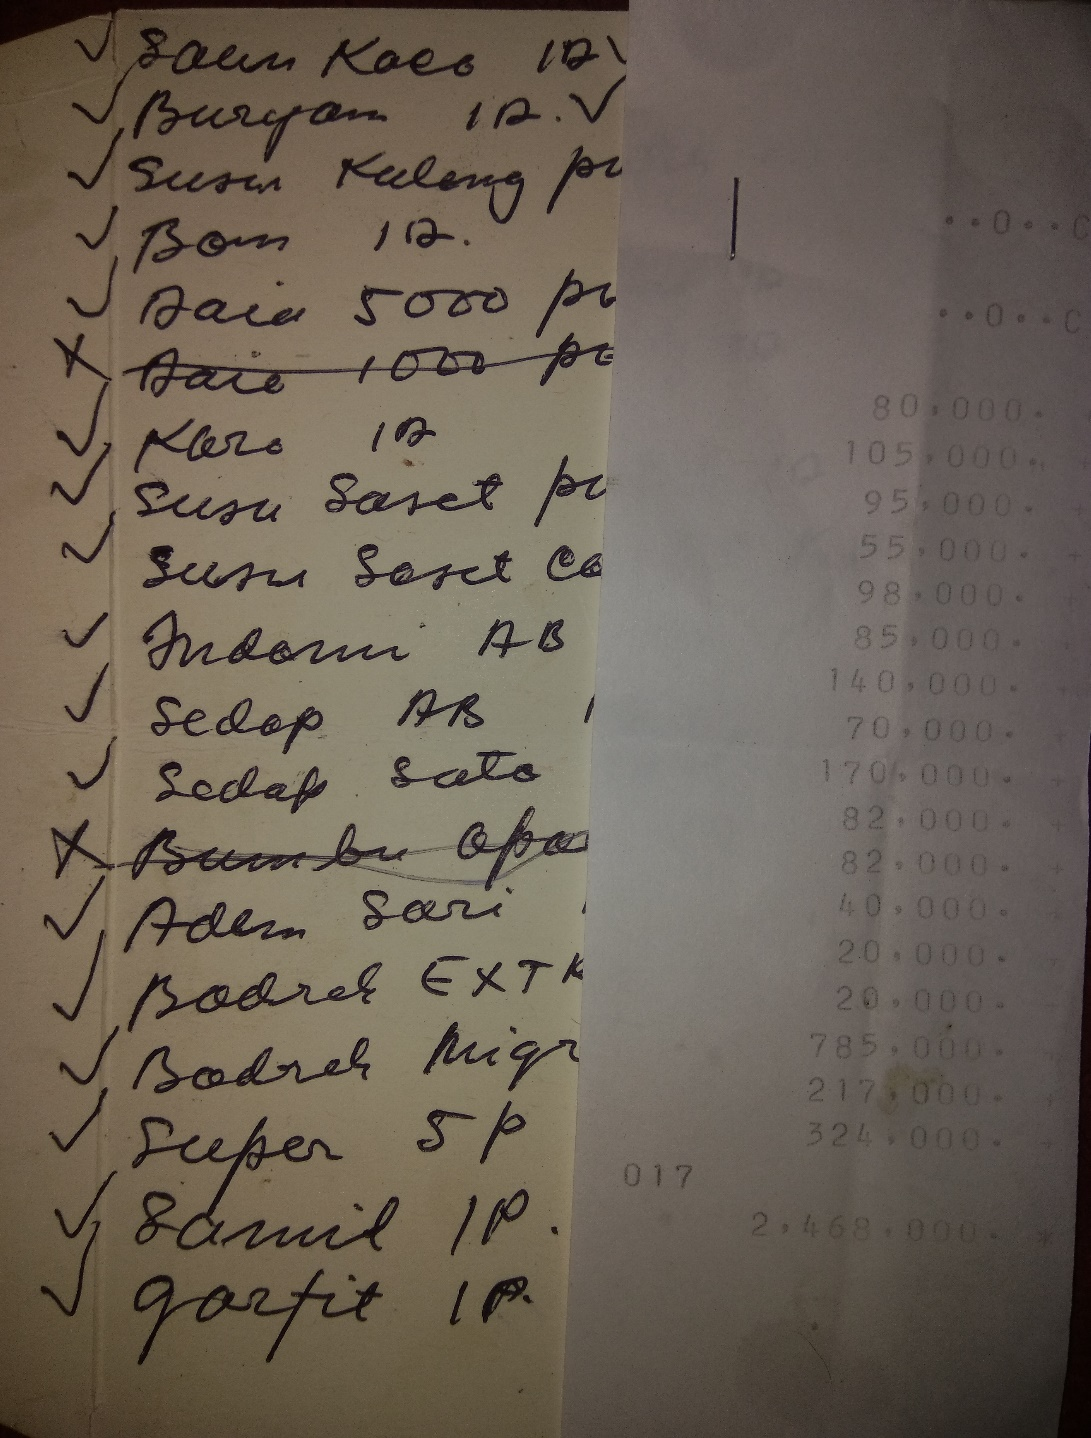 Saun Kaco 1D
Buryam 1D.
Susu Kaleng pu
Bom 1D.
Daia 5000 pu
Daia 1000 pe
Karo 1D
Susu Saset pu
Susu Saset Co
Indomi AB
Sedap AB 1
Sedap Soto
Bumbu Opo
Adem Sari
Bodrek EXTR
Bodrek Migr
Super 5P
Samil 1P.
Garfit 1P.
..0..C
..0..C
80,000.
105,000. +
95,000. +
55,000. +
98,000.
85,000.
140,000.
70,000. +
170,000. +
82,000. +
82,000. +
40,000. +
20,000. +
20,000.
785,000.
217,000. +
324,000. +
017
2,468,000. *